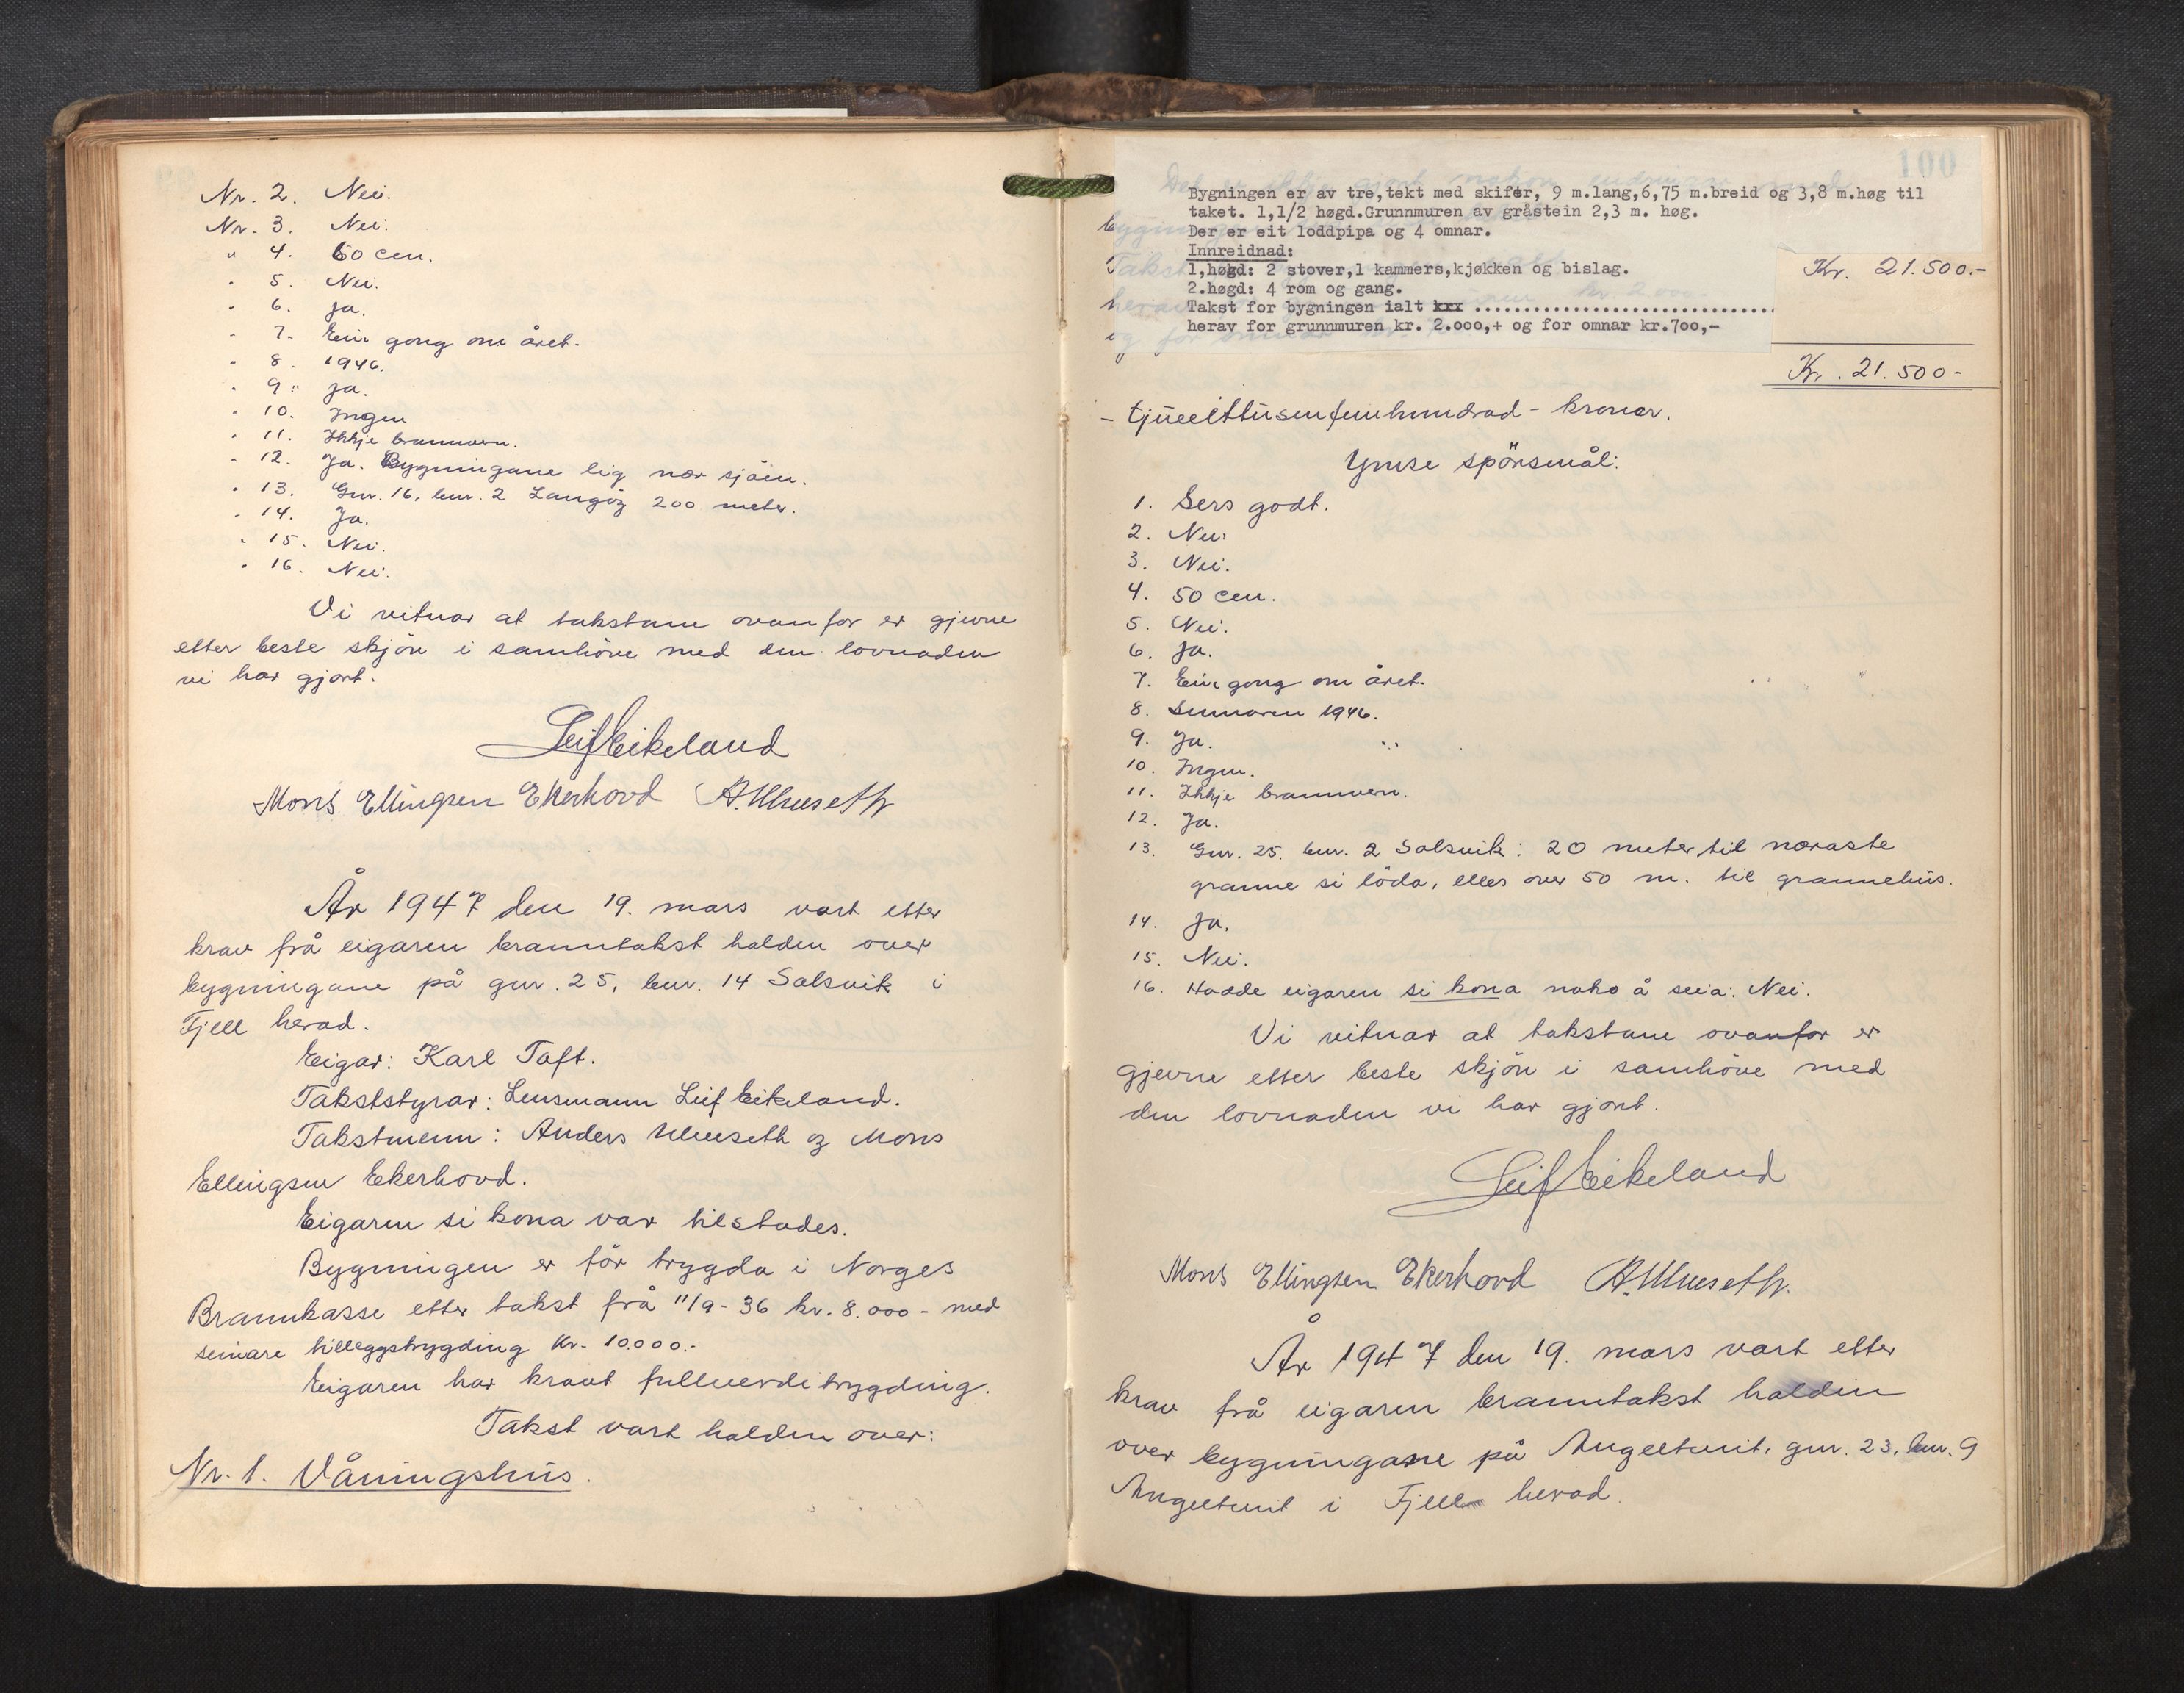 Nr. 2. Nei.
Nr. 3. Nei.
" 4. 60 cm.
" 5. Nei.
" 6. Ja.
" 7. Ein gong om året.
" 8. 1946.
" 9. Ja.
" 10. Ingen
" 11. Ikkje brannvern.
" 12. Ja. Bygningane lig nær sjöen.
" 13. Gnr. 16, bnr. 2 Langöy 200 meter.
" 14. Ja.
" 15. Nei.
" 16. Nei.
Vi vitnar at takstane ovanfor er gjevne
etter beste skjön i samhöve med den lovnaden
vi har gjort.
Leif Eikeland
Mons Ellingsen Ekerhovd A. Ulveseth
År 1947 den 19. mars vart etter
krav frå eigaren branntakst halden over
bygningane på gnr. 25, bnr. 14 Solsvik i
Fjell herad.
Eigar: Karl Toft.
Takststyrar: Lensmann Leif Eikeland.
Takstmenn: Anders Ulveseth og Mons
Ellingsen Ekerhovd.
Eigaren si kona var tilstades.
Bygningen er för trygda i Norges
Brannkasse etter takst frå 11/9-36 kr. 8.000- med
seinare tilleggstrygding kr. 10.000.-
Eigaren har kravt fullverditrygding.
Takst vart halden over:
Nr. 1. Våningshus.
100
Bygningen er av tre,tekt med skifer, 9 m.lang,6,75 m.breid og 3,8 m.høg til
taket. 1,1/2 høgd.Grunnmuren av gråstein 2,3 m. høg.
Der er eit loddpipa og 4 omnar.
Innreidnad:
1,høgd: 2 stover,1 kammers,kjøkken og bislag.
2.høgd: 4 rom og gang.
Takst for bygningen ialt krx ..............................
Kr. 21.500.-
herav for grunnmuren kr. 2.000,+ og for omnar kr.700,-
Kr. 21.500-
- tjueeittusenfemhundrad - kroner.
Ymse spörsmål:
1. Sers godt.
2. Nei.
3. Nei.
4. 50 cm.
5. Nei.
6. Ja.
7. Ein gong om året.
8. Sumaren 1946.
9. Ja.
10. Ingen.
11. Ikkje brannvern.
12. Ja.
13. Gnr. 25. bnr. 2 Solsvik: 20 meter til næraste
granne si löda, elles over 50 m. til grannehus.
14. Ja.
15. Nei.
16. Hadde eigaren si kona noko å seia: Nei.
Vi vitnar at takstane ovanfor er
gjevne etter beste skjön i samhöve med
den lovnaden vi har gjort.
Leif Eikeland
Mons Ellingsen Ekerhovd A. Ulveseth.
År 1947 den 19. mars vart etter
krav frå eigaren branntakst halden
over bygningane på Angeltveit, gnr. 23, bnr. 9
Angeltveit i Fjell herad.